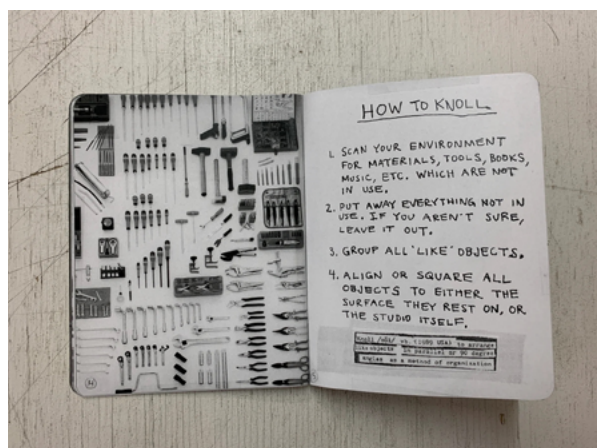 HOW TO KNOLL
1. SCAN YOUR ENVIRONMENT
FOR MATERIALS, TOOLS, BOOKS,
MUSIC, ETC. WHICH ARE NOT
IN USE.
2. PUT AWAY EVERYTHING NOT IN
USE. IF YOU AREN'T SURE,
LEAVE IT OUT.
3. GROUP ALL 'LIKE' OBJECTS.
4. ALIGN OR SQUARE ALL
OBJECTS TO EITHER THE
SURFACE THEY REST ON, OR
THE STUDIO ITSELF.
vb. (1989 USA) to arrange
like objects in parallel or 90 degree
angles as a method of organization